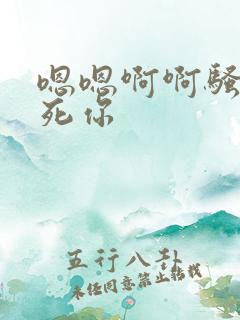 嗯嗯啊啊骚
死你
五行八卦
未经同意禁止转载